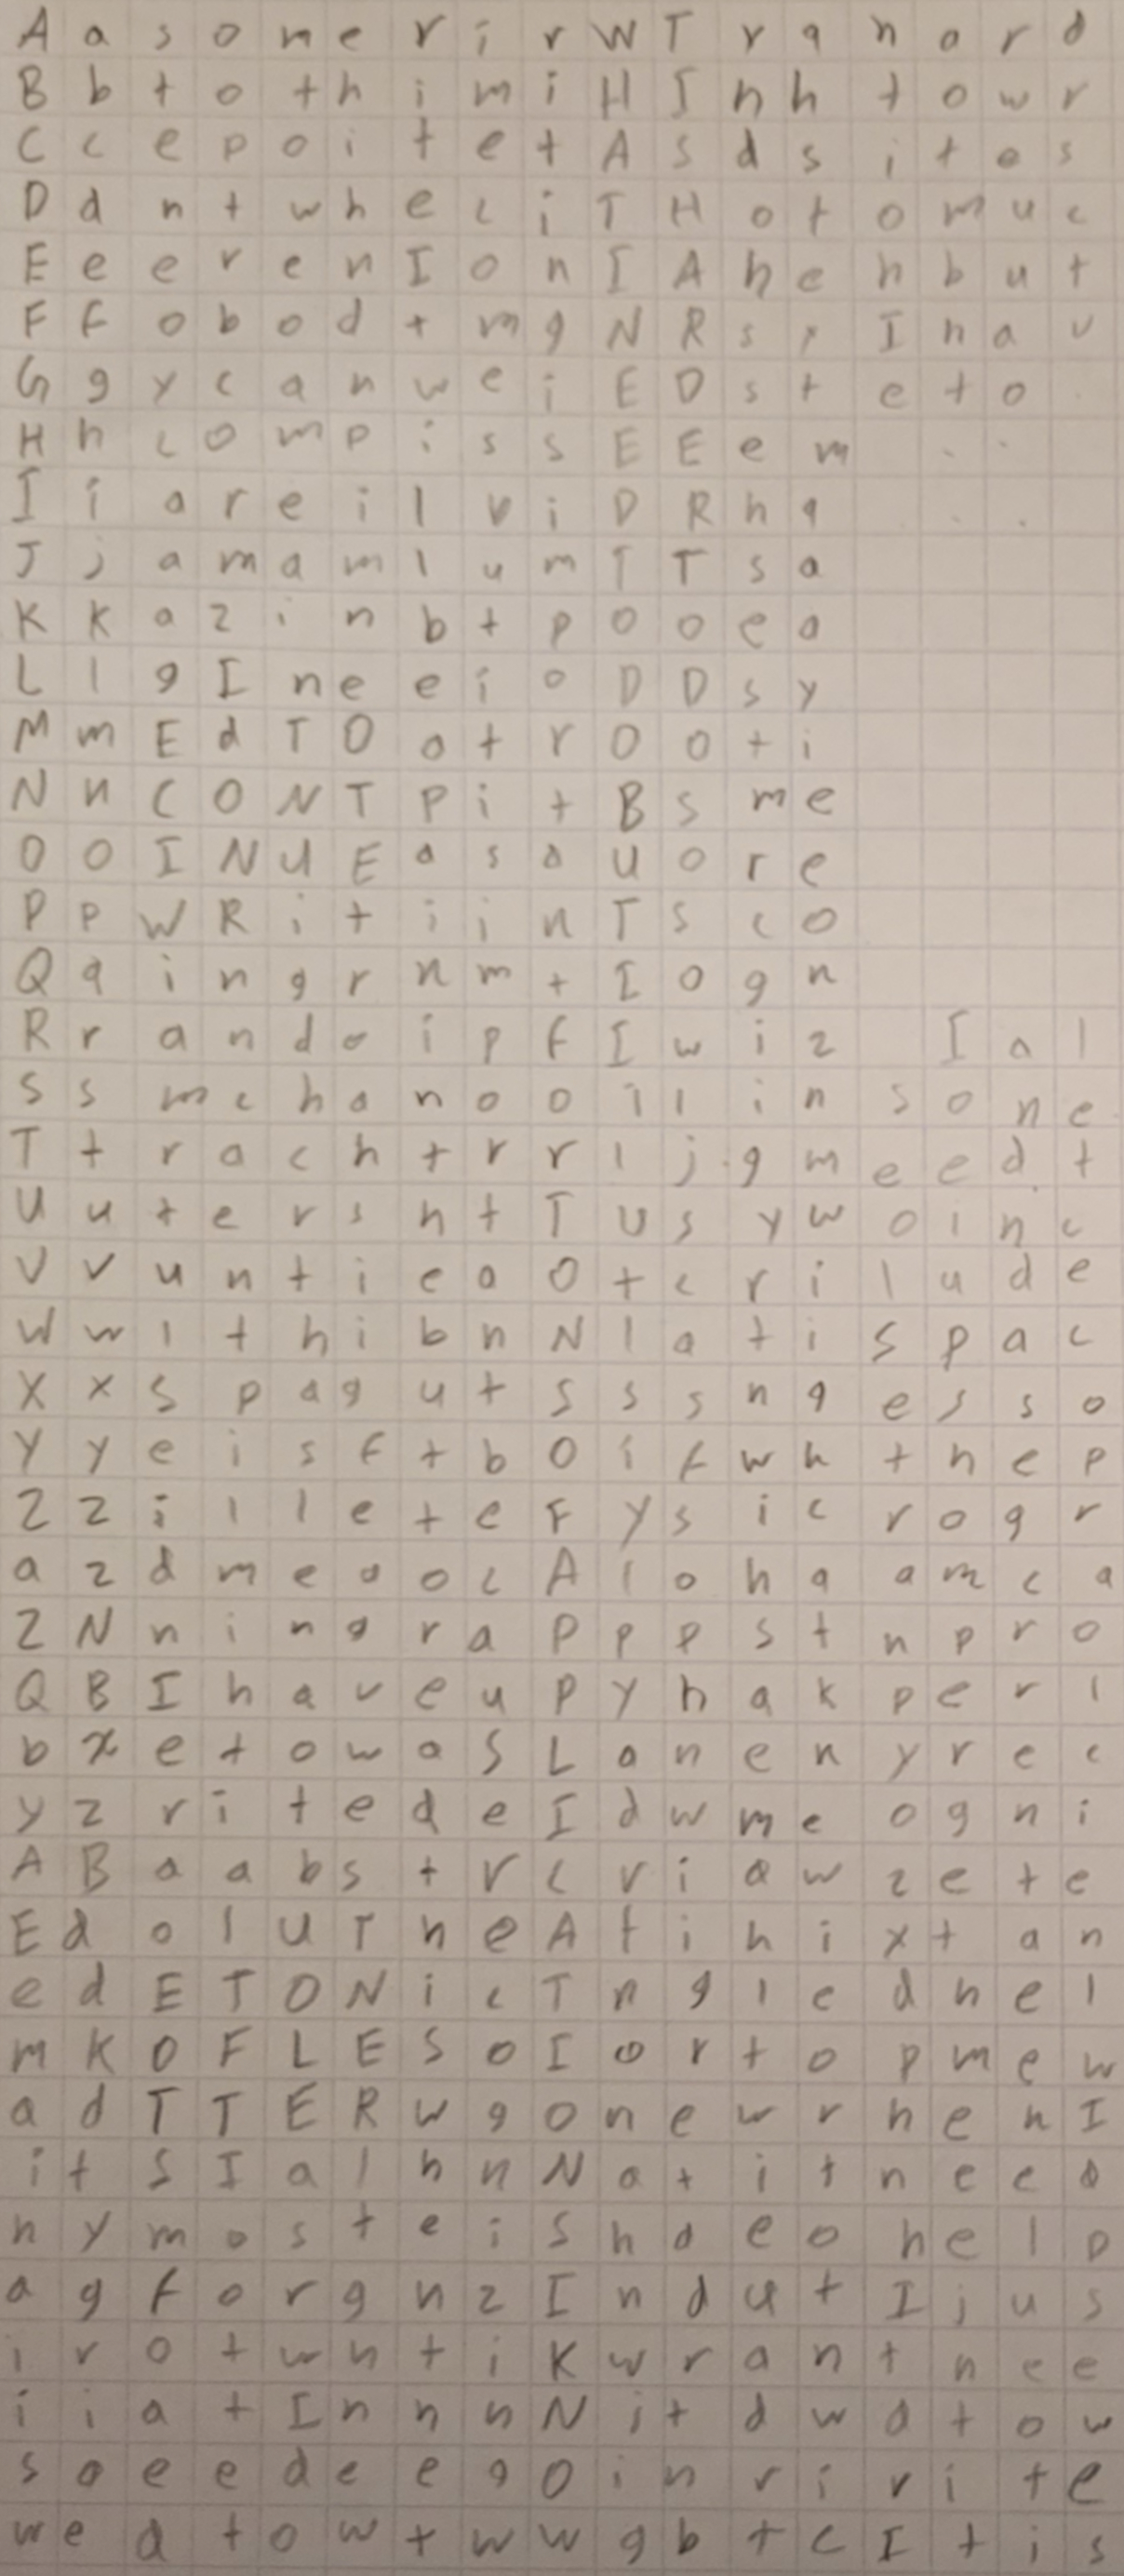 A a s o m e r i r W T r a n o r d
B b t o t h i m i H I n h t o w r
C c e p o i t e t A S d s i t e s
D d n t w h e c i T H o t o m u c
E e e r e n I o n I A h e h b u t
F f o b o d t m g N R s r I h a v
G g y c a n w e i E D s t e t o
H h c o m p i s s E E e m
I i a r e i l v i D R h a
J j a m a m l u m T T s a
K k a z i n b t p O o e a
L l g I n e e i o D D s y
M m E d T O o t r O o t i
N n C O N T P i t B s m e
O O I N U E a s a u o r e
P p W R i t i i n T s c o
Q q i n g r n m t I o g n
R r a n d o i p f I w i z I a l
S s m c h a n o o i l i n s o n e
T t r a c h t r r l j g m e e d t
U u t e r s h t T U s y w o i n c
V v u n t i e a O t c r i l u d e
W w i t h i b n N l a t i s p a c
X x s p a g u t S s s n g e s s o
Y y e i s f t b O i f w h t h e p
Z z i l l e t e F y s i c r o g r
a z d m e o o c A l o h a a m c a
Z N n i n g r a P p p s t n p r o
Q B I h a v e u P y h a k p e r l
b x e t o w a S L a n e n y r e c
y z r i t e d e I d w m e o g n i
A B a a b s t r c r i a w z e t e
E d o l U T h e A t i h i x t a n
e d E T O N i c T n g l e d h e l
m K O F L E S o I o r t o p m e w
a d T T E R w g o n e w r h e n I
i t S I a l h n N a t i t n e e d
n y m o s t e i S h d e o h e l p
a g f o r g n z I n d u t I j u s
i r o t w h t i K w r a n t n e e
i i a t I n h n N i t d w d t o w
s o e e d e e g O i n r i r i t e
w e a t o w t w w g b t c I t i s